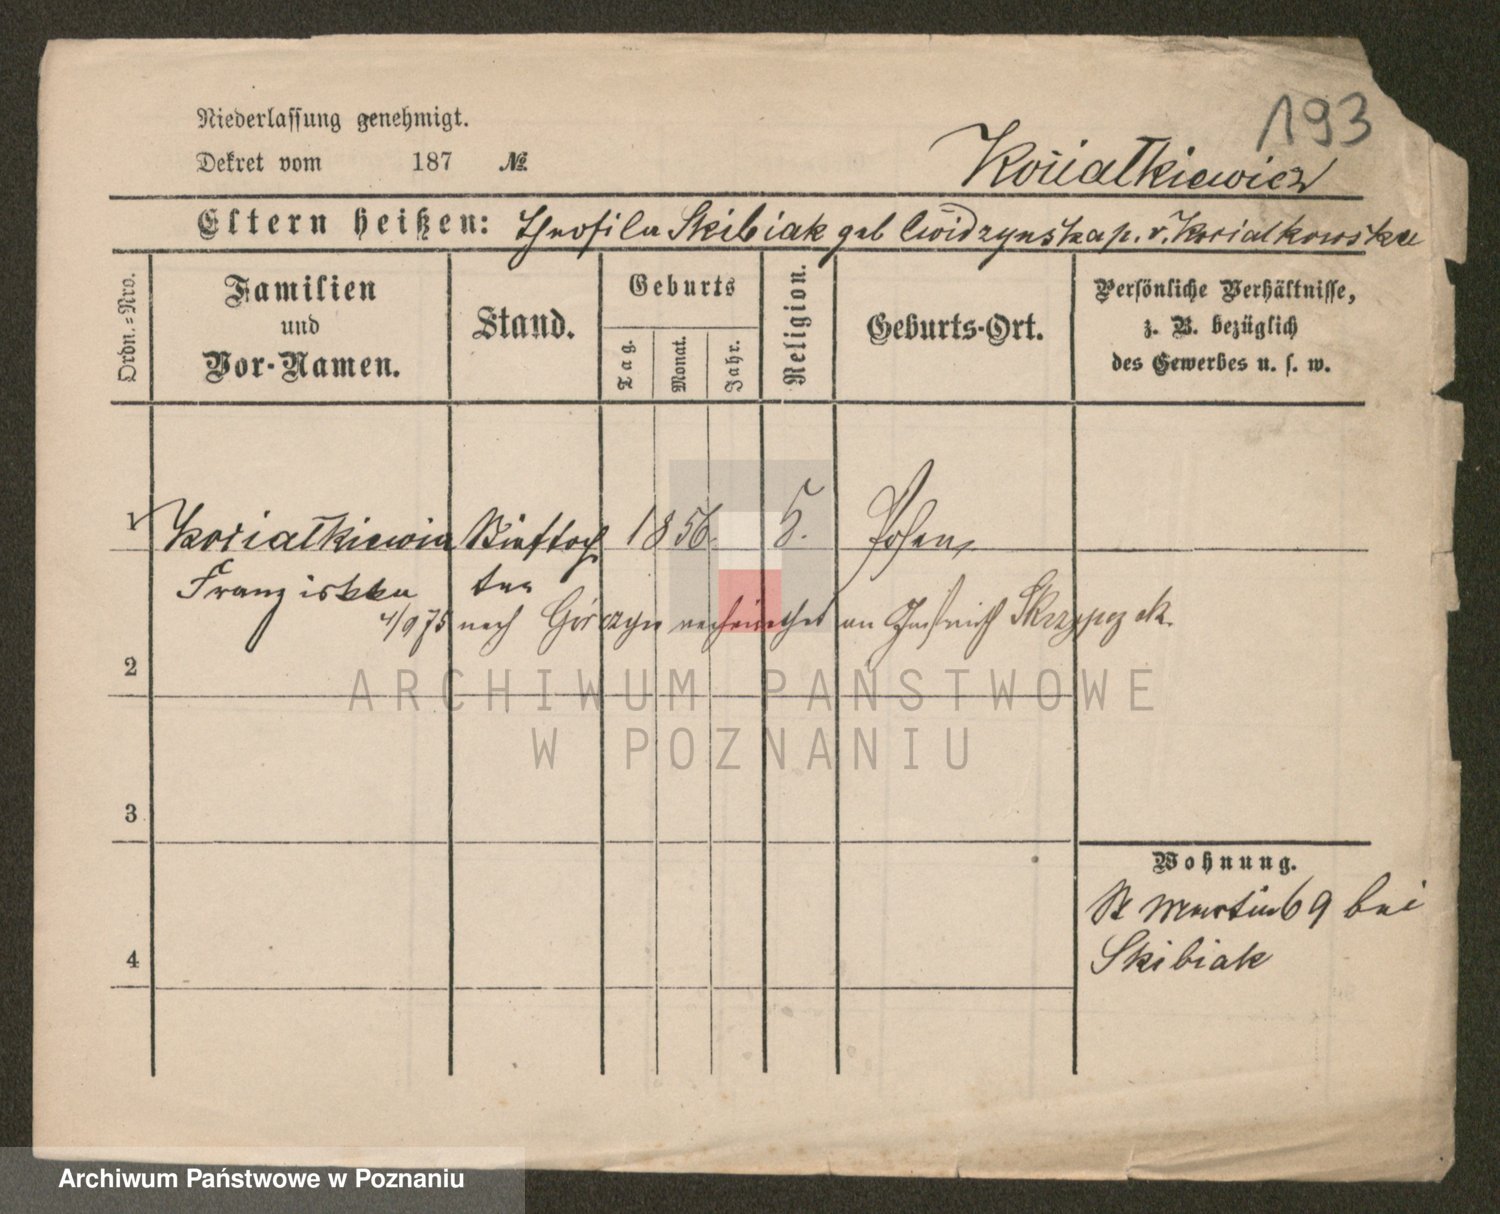 193
Niederlassung genehmigt.
Dekret vom 187 №
Kosiatkiewicz
Eltern heißen: Theofila Skibiak geb Cwidzynska p. v. Kosiatkowska
Ordn.=Nro.
Familien
und
Vor-Namen.
Stand.
Geburts
Tag.
Monat.
Jahr.
Religion.
Geburts-Ort.
Persönliche Verhältnisse,
z. B. bezüglich
des Gewerbes u. s. w.
1 Kosiatkiewicz 1856 Posen
Franziska
4/9 75 nach Górczyn verheirathet an Skrzypczak.
2
ARCHIWUM PAŃSTWOWE
W POZNANIU
3
Wohnung.
St Martin 69 bei
Skibiak
4
Archiwum Państwowe w Poznaniu